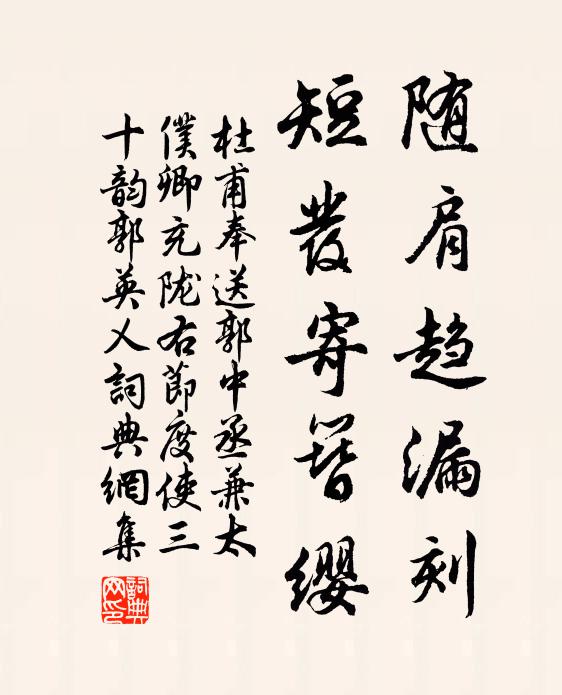 随肩趋漏刻
短发寄簪缨
杜甫奉送郭中丞兼太
仆卿充陇右節度使三
十韵郭英乂詞典網集
詞典网印